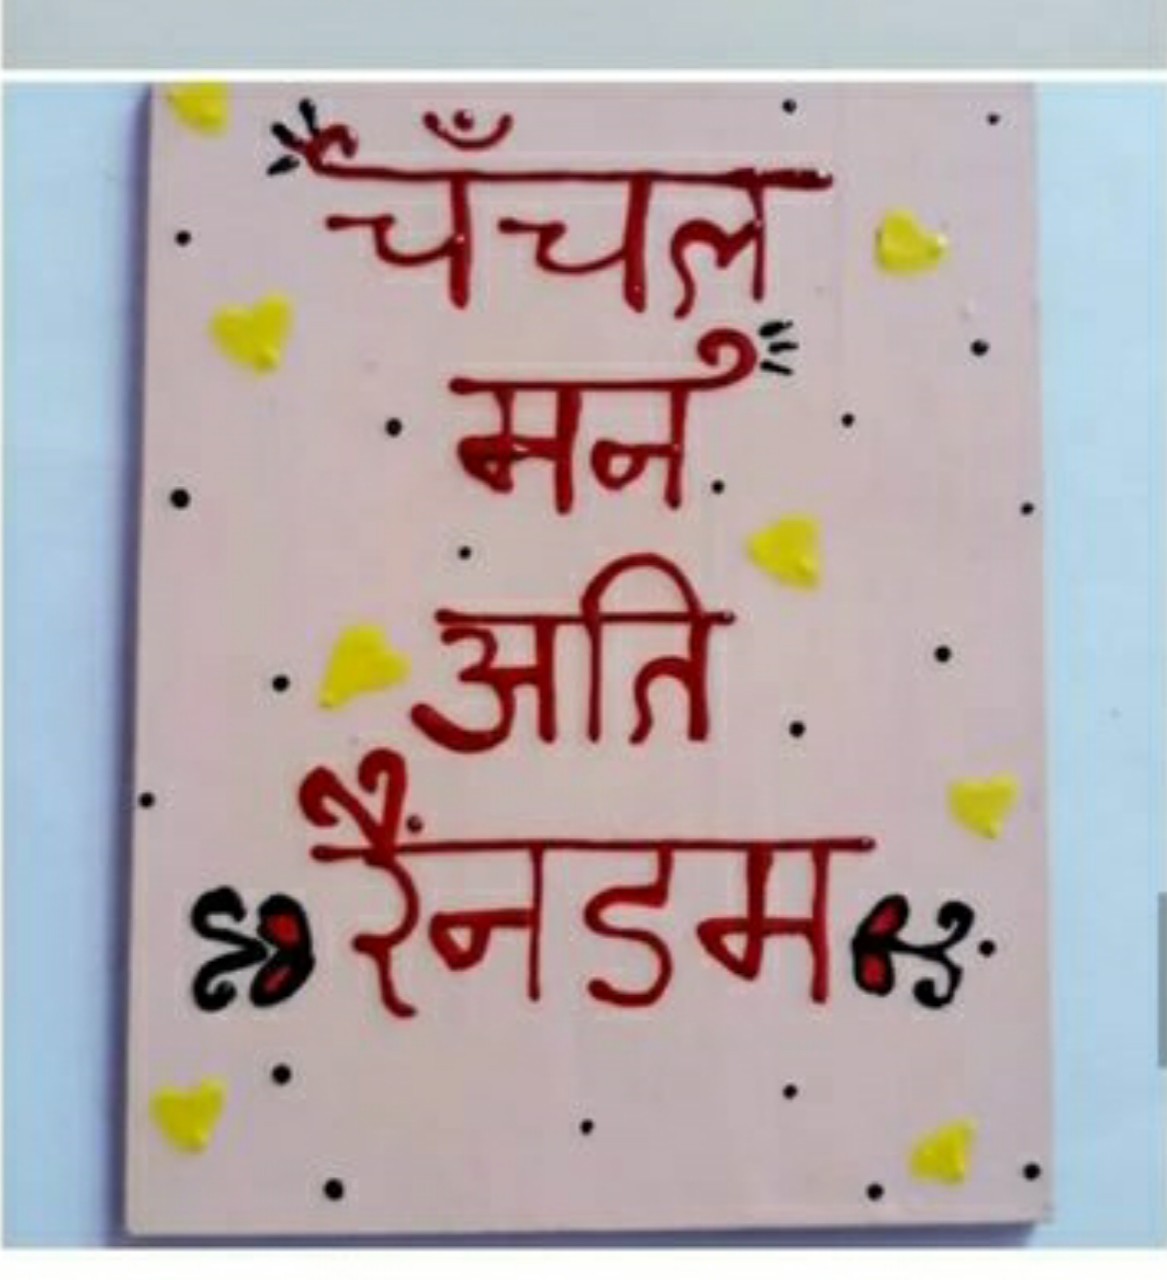 चँचल
मन
अति
रैंनडम